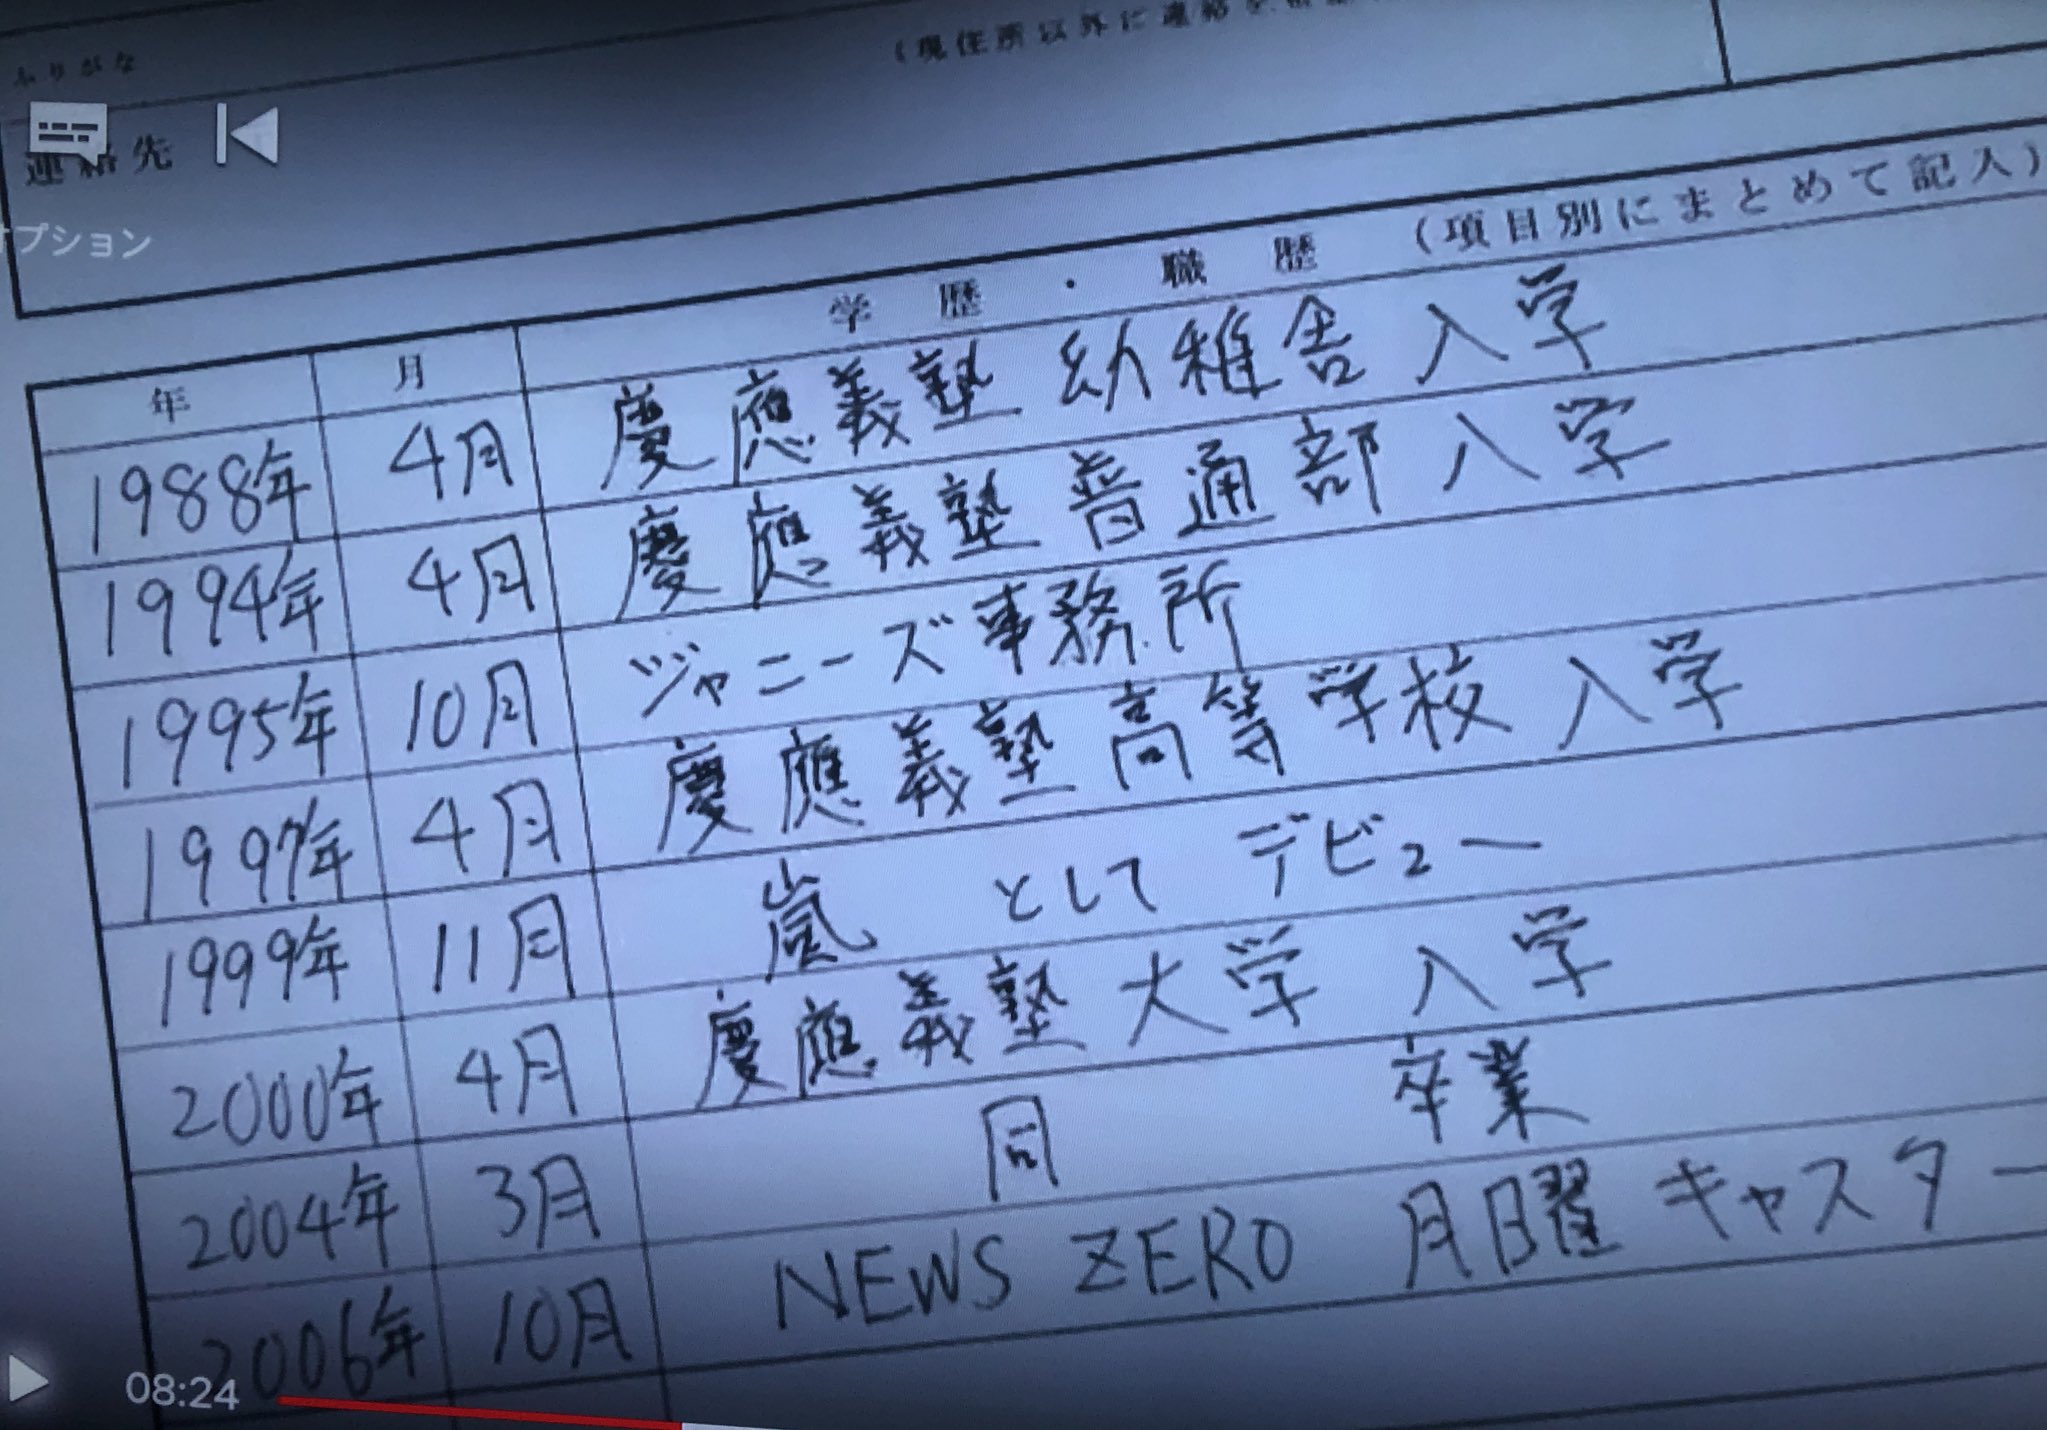 ふりがな
(現住所以外に連絡を
連絡先
プション
学歴・職歴 (項目別にまとめて記入)
年 月
1988年 4月 慶應義塾幼稚舎 入学
1994年 4月 慶應義塾普通部 入学
1995年 10月 ジャニーズ事務所
1997年 4月 慶應義塾高等学校 入学
1999年 11月 嵐 として デビュー
2000年 4月 慶應義塾大学 入学
2004年 3月 同 卒業
2006年 10月 NEWS ZERO 月曜キャスター
08:24